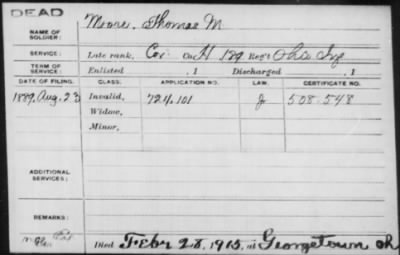 DEAD
NAME OF SOLDIER: Moore, Thomas M
SERVICE: Late rank, Cor Co. H 129 Reg't Ohio Inf
TERM OF SERVICE: Enlisted , 1 Discharged , 1
DATE OF FILING. CLASS. APPLICATION NO. LAW. CERTIFICATE NO.
1889, Aug. 23 Invalid, 724.101 J 508.548
Widow,
Minor,
ADDITIONAL SERVICES:
REMARKS:
Died Feb 28, 1915, at Georgetown Oh